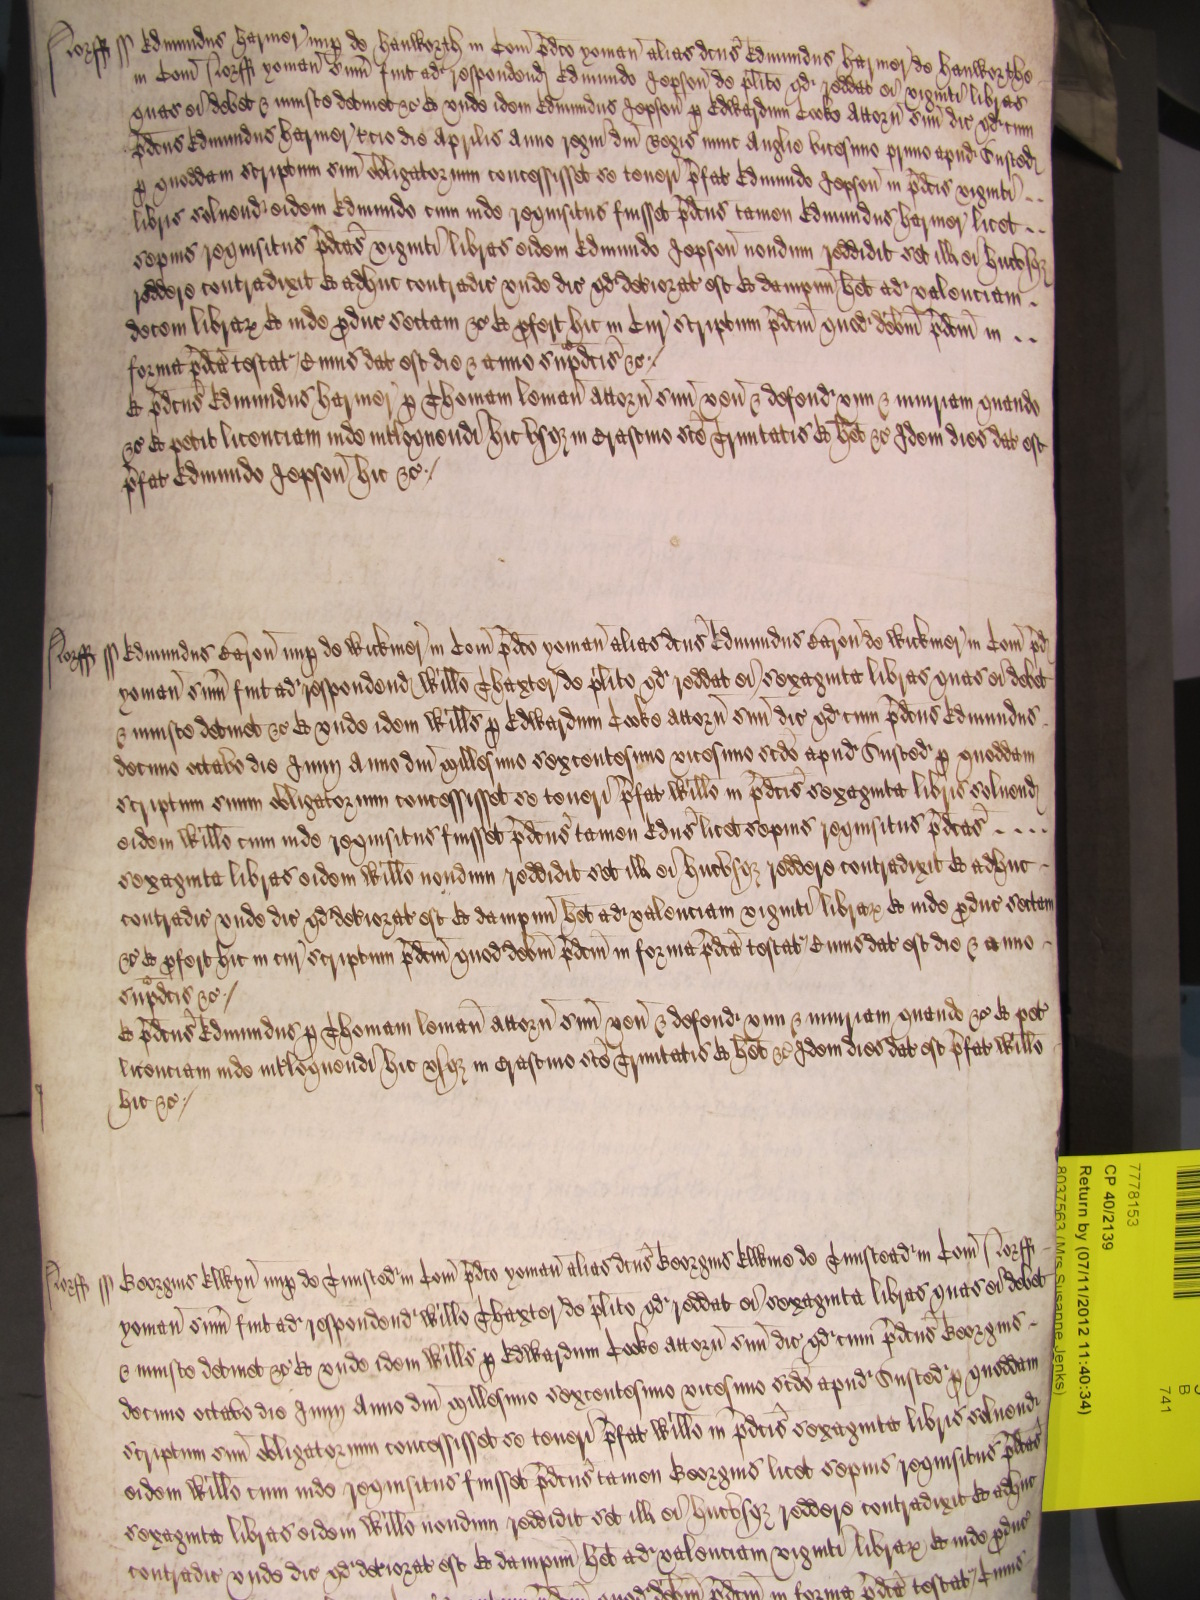 Norff ss Edmundus Harmer nup de Hanworth in Com pdco yoman alias dcus Edmundus Harmer de Hanworthe
in Com Norff yoman sum fuit ad respondend Edmundo Jepson de plito qd reddat ei viginti libras
quas ei debet & iniuste detinet &c Et unde idem Edmundus Jepson p Edwardum Cooke attorn suu dic qd cum
pdcus Edmundus Harmer tcio die Aprilis Anno regni dni Regis nunc Anglie vicesimo primo apud Susted
p quoddam scriptum suu obligatorium concessisset se teneri pfat Edmundo Jepson in pdcis viginti
libris solvend eidem Edmundo cum inde requisitus fuisset pdcus tamen Edmundus Harmer licet
sepius requisitus pdcas viginti libras eidem Edmundo Jepson nondum reddidit set ill ei hucusq
reddere contradixit Et adhuc contradic unde dic qd deteriorat est Et dampnu het ad valenciam
decem librar Et inde pduc sectam &c Et pfert hic in Cur scriptum pdcm quod debm pdcm in
forma pdca testat Cuius dat est die & anno supdcis &c
Et pdcus Edmundus Harmer p Thomam Leman attorn suu ven & defend vim & iniuriam quando
&c Et petit licenciam inde intloquendi hic usq in Crastino sce Trinitatis Et het &c Idem dies dat est
pfat Edmundo Jepson hic &c
Norff ss Edmundus Baron nup de Wickmer in Com pdco yoman alias dcus Edmundus Baron de Wickmer in Com pd
yoman sum fuit ad respondend Willo Thaxter de plito qd reddat ei sexaginta libras quas ei debet
& iniuste detinet &c Et unde idem Wills p Edwardum Cooke attorn suu dic qd cum pdcus Edmundus
decimo octavo die Junij Anno dni Millesimo sexcentesimo vicesimo scdo apud Susted p quoddam
scriptum suum obligatorium concessisset se teneri pfat Willo in pdcis sexaginta libris solvend
eidem Willo cum inde requisitus fuisset pdcus tamen Edus licet sepius requisitus pdcas
sexaginta libras eidem Willo nondum reddidit set ill ei hucusq reddere contradixit Et adhuc
contradic unde dic qd deteriorat est Et dampnu het ad valenciam viginti librar Et inde pduc sectam
&c Et pfert hic in cur scriptum pdcm quod debm pdcm in forma pdca testat Cuius dat est die & anno
supdcis &c
Et pdcus Edmundus p Thomam Leman attorn suu ven & defend vim & iniuriam quando &c Et pet
licenciam inde intloquendi hic usq in Crastino sce Trinitatis Et het &c Idem dies dat est pfat Willo
hic &c
Norff ss Georgius Elkyn nup de Tunsted in Com pdco yoman alias dcus Georgius Elkine de Tunstead in Com Norff
yoman sum fuit ad respondend Willo Thaxter de plito qd reddat ei sexaginta libras quas ei debet
& iniuste detinet &c Et unde idem Wills p Edwardum Cooke attorn suu dic qd cum pdcus Georgius
decimo octavo die Junij Anno dni Millesimo sexcentesimo vicesimo scdo apud Susted p quoddam
scriptum suu obligatorium concessisset se teneri pfat Willo in pdcis sexaginta libris solvend
eidem Willo cum inde requisitus fuisset pdcus tamen Georgius licet sepius requisitus pdcas
sexaginta libras eidem Willo nondum reddidit set ill ei hucusq reddere contradixit Et adhuc
contradic unde dic qd deteriorat est Et dampnu het ad valenciam viginti librar Et inde pduc
pdcm quod debm pdcm in forma pdca testat Cuius
7778153
CP 40/2139
Return by (07/11/2012 11:40:34)
8037563 (Mrs Susanne Jenks)
B
741